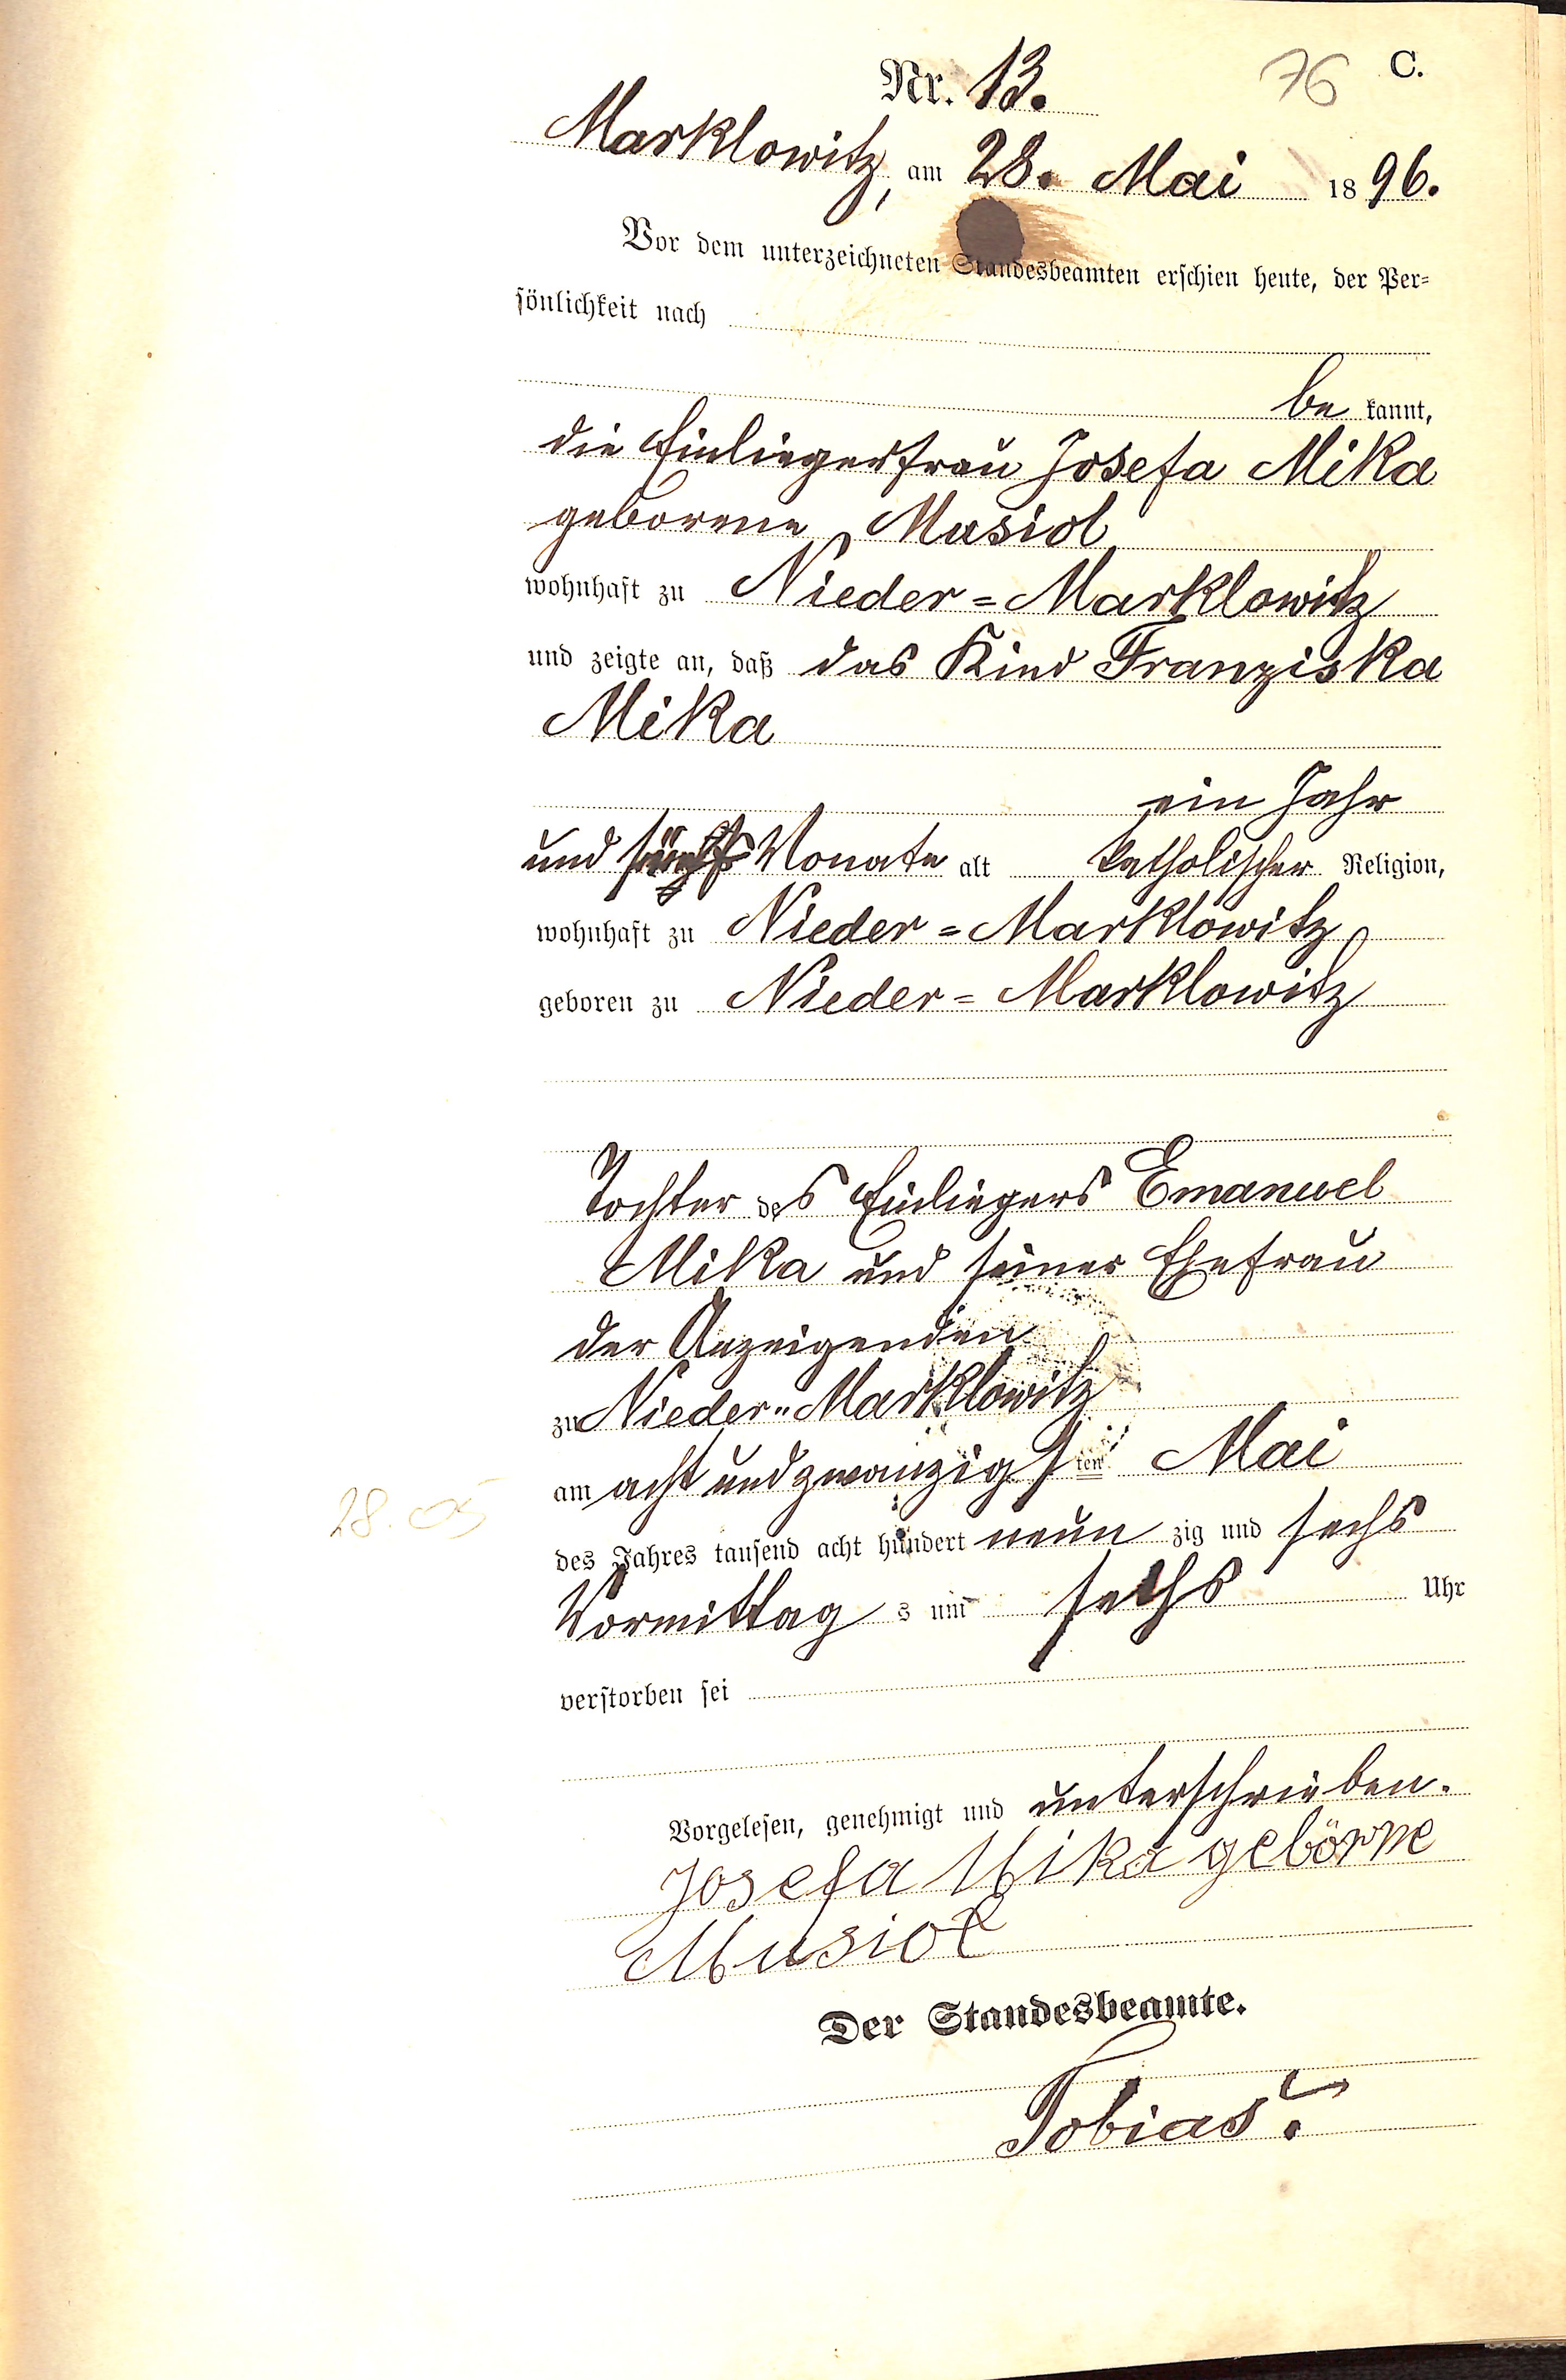 Nr. 13. 76 C.
Marklowitz, am 28. Mai 1896.
Vor dem unterzeichneten Standesbeamten erschien heute, der Per-
sönlichkeit nach
be kannt,
die Einliegerfrau Josefa Mika
geborene Musiol
wohnhaft zu Nieder-Marklowitz
und zeigte an, daß das Kind Franziska
Mika
ein Jahr
und Monate alt katholischer Religion,
wohnhaft zu Nieder-Marklowitz
geboren zu Nieder-Marklowitz
Tochter des Einliegers Emanuel
Mika und seiner Ehefrau
der Anzeigenden
zu Nieder-Marklowitz
am acht und zwanzigsten Mai
28.05
des Jahres tausend acht hundert neun zig und sechs
Vormittag s um sechs Uhr
verstorben sei
Vorgelesen, genehmigt und unterschrieben.
Josefa Mika geborne
Musiol
Der Standesbeamte.
Tobias.